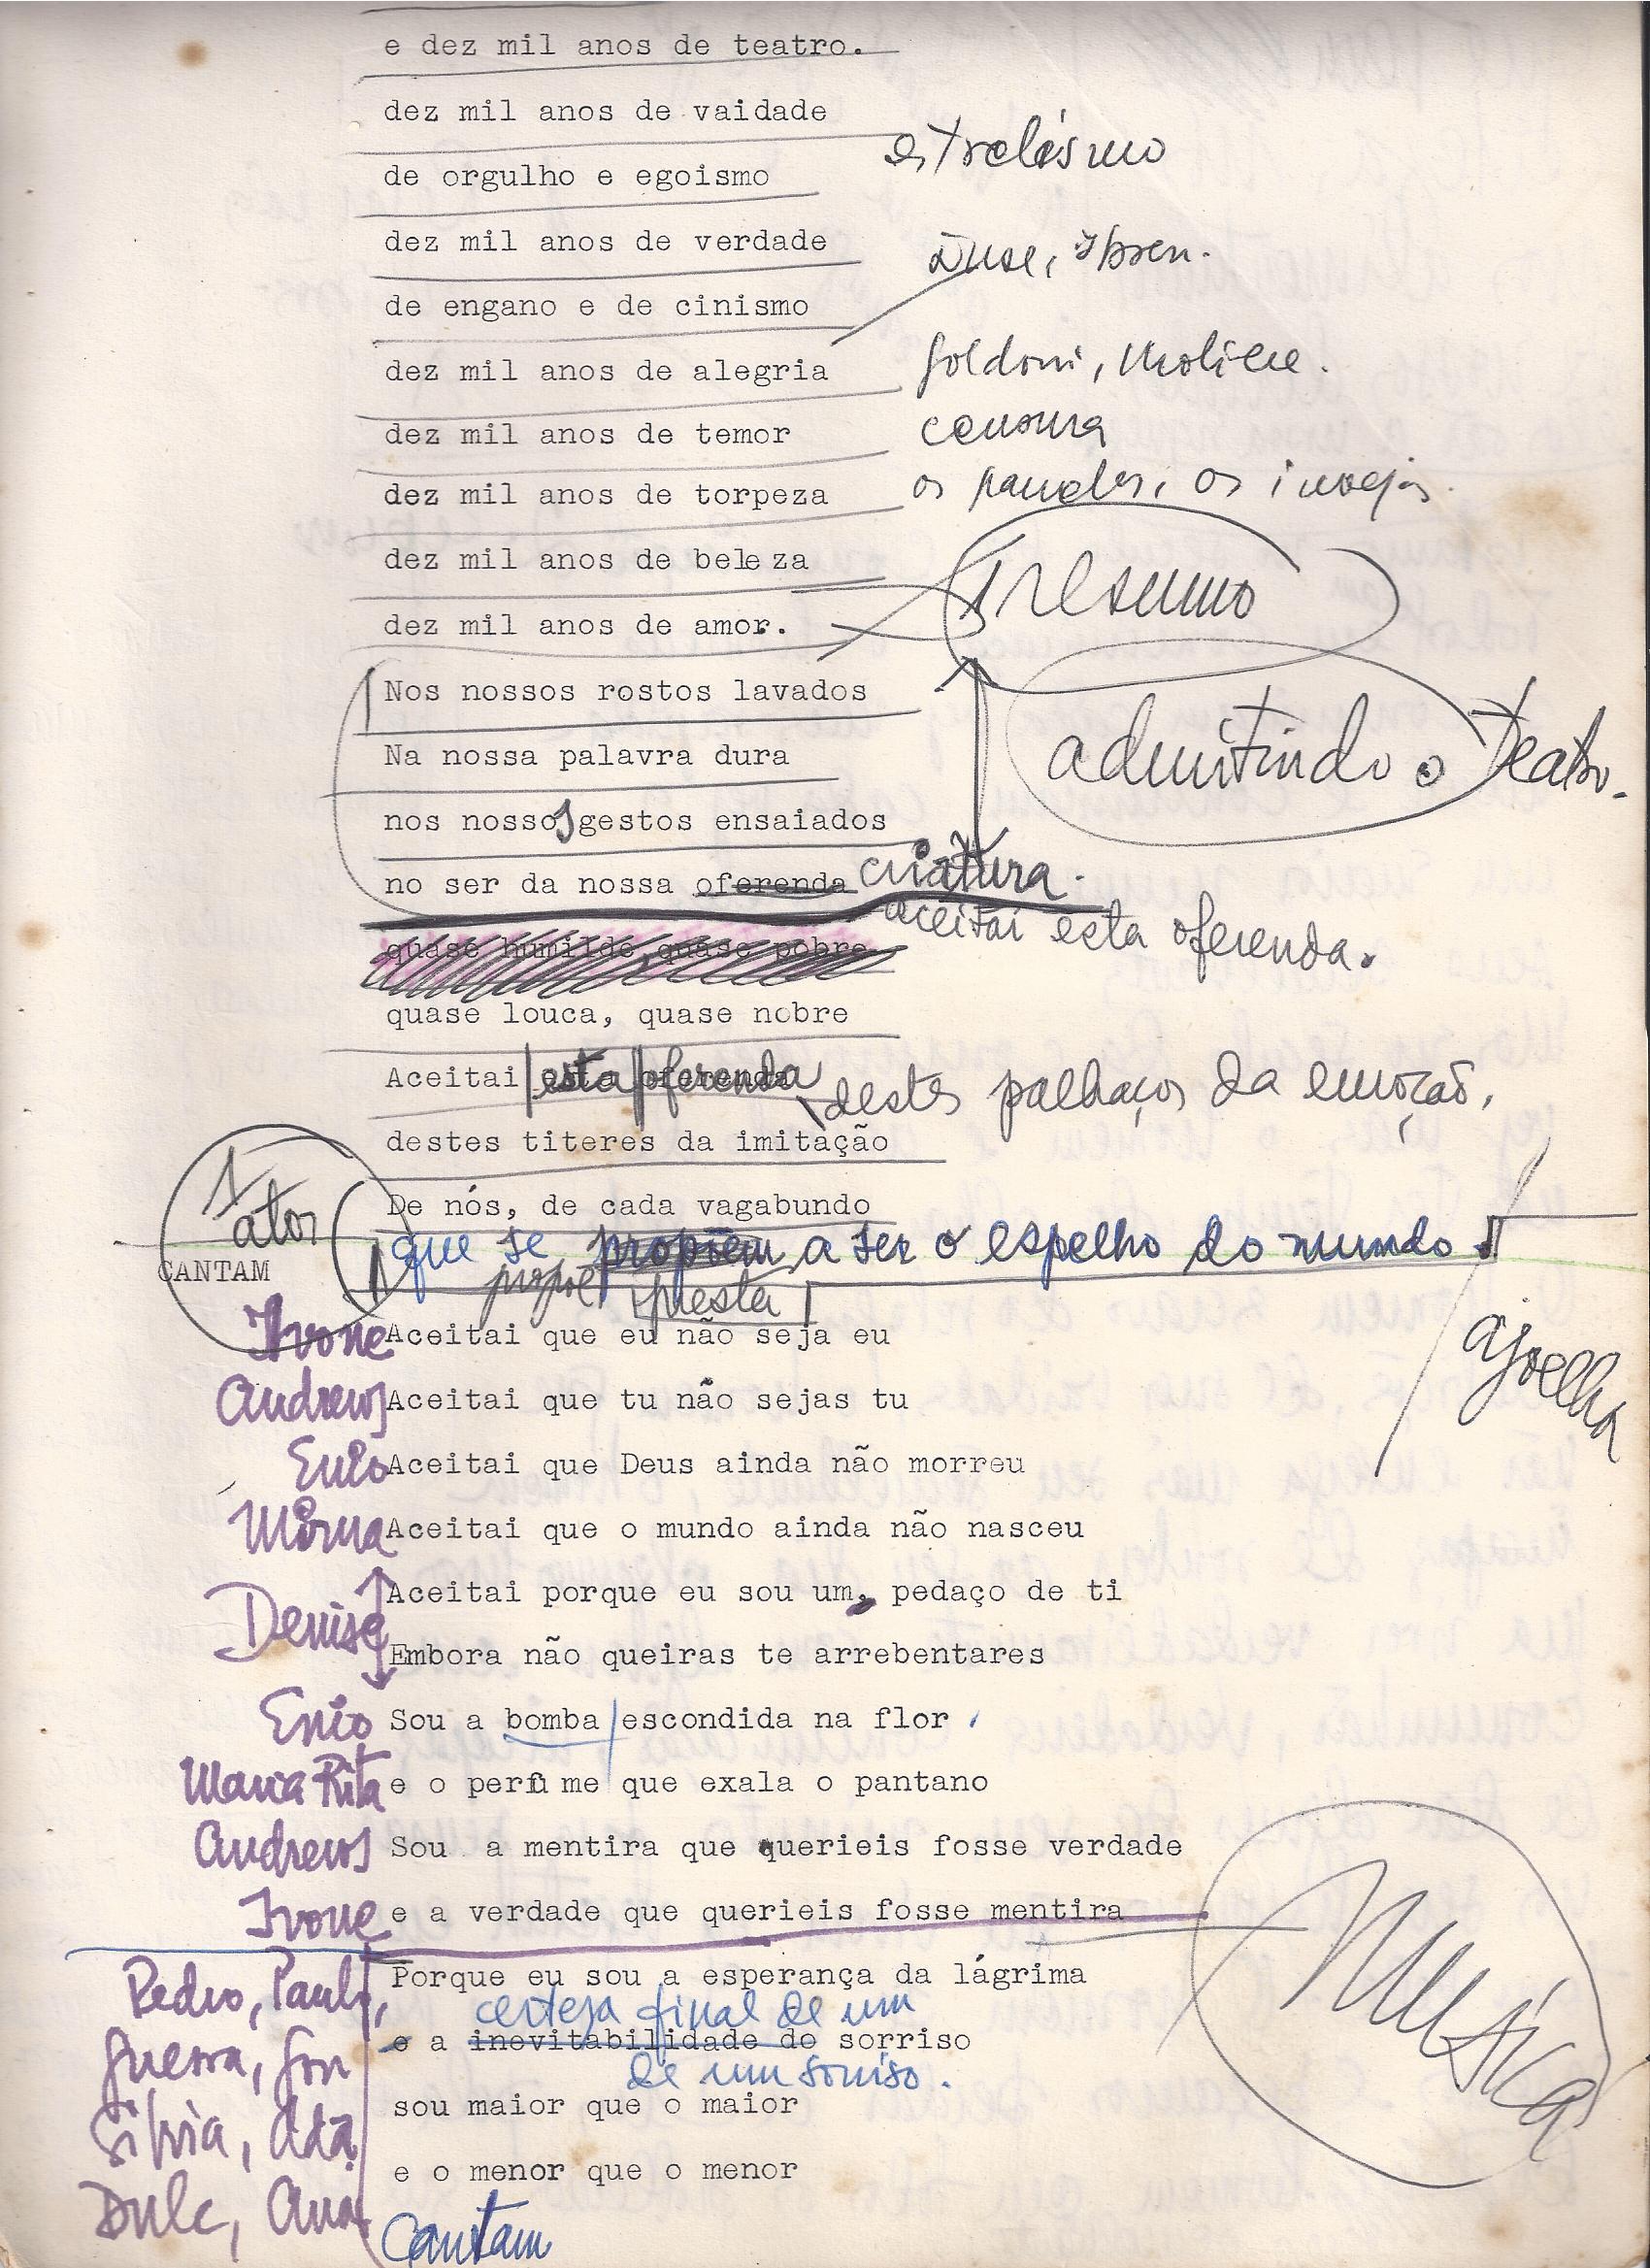 e dez mil anos de teatro.
dez mil anos de vaidade
estrelismo
de orgulho e egoismo
dez mil anos de verdade
Duse, Ibsen.
de engano e de cinismo
dez mil anos de alegria
Goldoni, Moliere.
dez mil anos de temor
censura
dez mil anos de torpeza
os invejas.
dez mil anos de beleza
resumo
dez mil anos de amor.
Nos nossos rostos lavados
Na nossa palavra dura
admitindo o Teatro.
nos nossos gestos ensaiados
no ser da nossa oferenda criatura.
aceitai esta oferenda.
quase humilde, quase pobre
quase louca, quase nobre
Aceitai esta oferenda
destes palhaços da emoção,
destes titeres da imitação
De nós, de cada vagabundo
1 ator
que se propõem a ser o espelho do mundo.
propõe presta
CANTAM
ajoelha
Ivone Aceitai que eu não seja eu
Andrews Aceitai que tu não sejas tu
Enio Aceitai que Deus ainda não morreu
Mirna Aceitai que o mundo ainda não nasceu
Denise Aceitai porque eu sou um, pedaço de ti
Embora não queiras te arrebentares
Enio Sou a bomba escondida na flor
Maria Rita e o perfume que exala o pantano
Andrews Sou a mentira que querieis fosse verdade
Ivone e a verdade que querieis fosse mentira
Música
Pedro, Paulo, Porque eu sou a esperança da lágrima
certeza final de um
Guerra, e a inevitabilidade do sorriso
de um sorriso.
Silvia, Ada, sou maior que o maior
e o menor que o menor
Dulc, Ana
Cantam